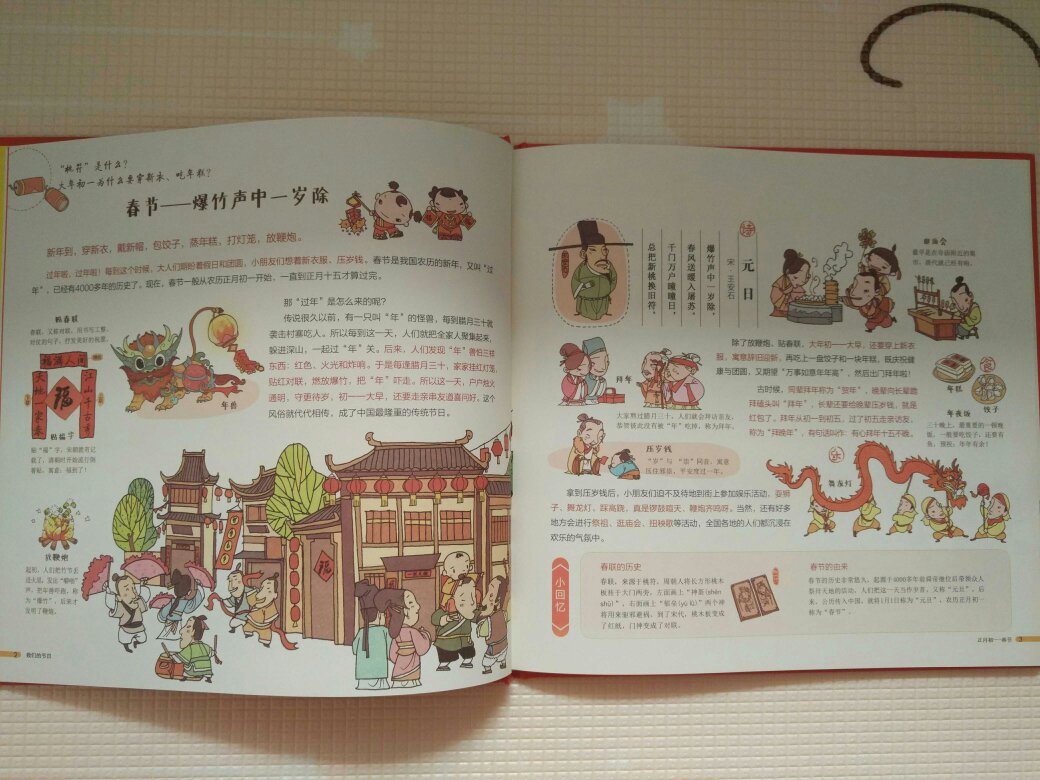 “桃符”是什么？
大年初一为什么要穿新衣、吃年糕？
春节——爆竹声中一岁除
新年到，穿新衣，戴新帽，包饺子，蒸年糕，打灯笼，放鞭炮。
过年啦，过年啦！每到这个时候，大人们期盼着假日和团圆，小朋友们想着新衣服、压岁钱。春节是我国农历的新年，又叫“过
年”，已经有4000多年的历史了。现在，春节一般从农历正月初一开始，一直到正月十五才算过完。
那“过年”是怎么来的呢？
传说很久以前，有一只叫“年”的怪兽，每到腊月三十就
袭击村寨吃人。所以每到这一天，人们就把全家人聚集起来，
躲进深山，一起过“年”关。后来，人们发现“年”兽怕三样
东西：红色、火光和炸响。于是每逢腊月三十，家家挂红灯笼、
贴红对联，燃放爆竹，把“年”吓走。所以这一天，户户烛火
通明，守更待岁，初一一大早，还要走亲串友道喜问好。这个
风俗就代代相传，成了中国最隆重的传统节日。
贴春联
春联，又称对联，用书写工整、
对仗的句子，抒发美好的祝愿。
福满人间
江山千古秀
大地一家春
福
贴福字
贴“福”字，宋朝就有记
着贴，寓意：福到了！
年兽
放鞭炮
起初，人们把竹节丢
进火里，发出“噼啪”
声，把年兽吓跑，称
为“爆竹”，后来才
发明了鞭炮。
福
2 我们的节日
诗
元日
宋·王安石
爆竹声中一岁除，
春风送暖入屠苏。
千门万户曈曈日，
总把新桃换旧符。
逛庙会
最早是在寺庙附近的集
市，唐代就已经有啦。
除了放鞭炮、贴春联，大年初一一大早，还要穿上新衣
服，寓意辞旧迎新，再吃上一盘饺子和一块年糕，既庆祝健
康与团圆，又期望“万事如意年年高”，然后出门拜年啦！
古时候，同辈拜年称为“贺年”，晚辈向长辈跪
拜磕头叫“拜年”，长辈还要给晚辈压岁钱，就是
红包了，拜年从初一到初五，过了初五走亲访友，
称为“拜晚年”，有句话叫作：有心拜年十五不晚。
拜年
大家熬过腊月三十，人们就会拜访亲友，
恭贺彼此没有被“年”吃掉，称为拜年。
压岁钱
“岁”与“祟”同音，寓意
压住邪祟，平安度过一年。
年糕
饺子
年夜饭
三十晚上，最重要的一顿晚
饭，一般要吃饺子，还要有
鱼，预祝：年年有余！
舞龙灯
拿到压岁钱后，小朋友们迫不及待地到街上参加娱乐活动，耍狮
子、舞龙灯、踩高跷，真是锣鼓喧天、鞭炮齐鸣呀。当然，还有好多
地方会进行祭祖、逛庙会、扭秧歌等活动，全国各地的人们都沉浸在
欢乐的气氛中。
小回忆
春联的历史
春联，来源于桃符。周朝人将长方形桃木
板挂于大门两旁，左面画上“神荼(shēn
shū)”、右面画上“郁垒(yù lǜ)”两个神
将用来驱邪避祸，到了宋代，桃木板变成
了红纸，门神变成了对联。
春节的由来
春节的历史非常悠久，起源于4000多年前舜帝继位后带领众人
祭拜天地的活动，人们把这一天当作岁首，又称“元旦”，后
来，公历传入中国，就将1月1日称为“元旦”，农历正月初一
称为“春节”。
正月初一——春节 3